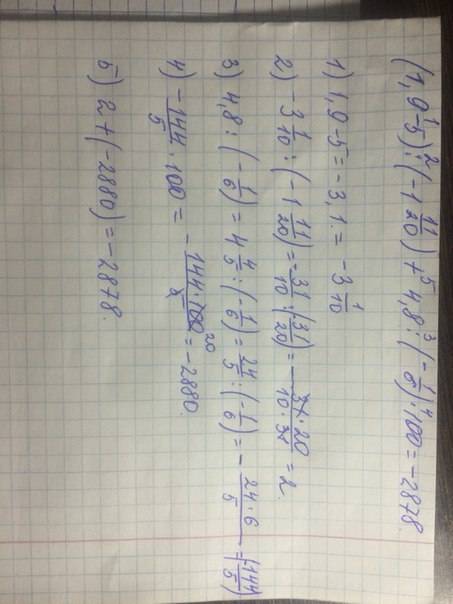 (1,9-5):(-1 11/20)+4,8:(-1/6)·100=-2878.
1) 1,9-5=-3,1.=-3 1/10
2) -3 1/10:(-1 11/20)=-31/10:(31/20)=-31·20/10·31=2.
3) 4,8:(-1/6)=4 4/5:(-1/6)=24/5:(-1/6)=-24·6/5=(144/5)
4) -144/5·100=-144·100/5=-2880.
5) 2+(-2880)=-2878.